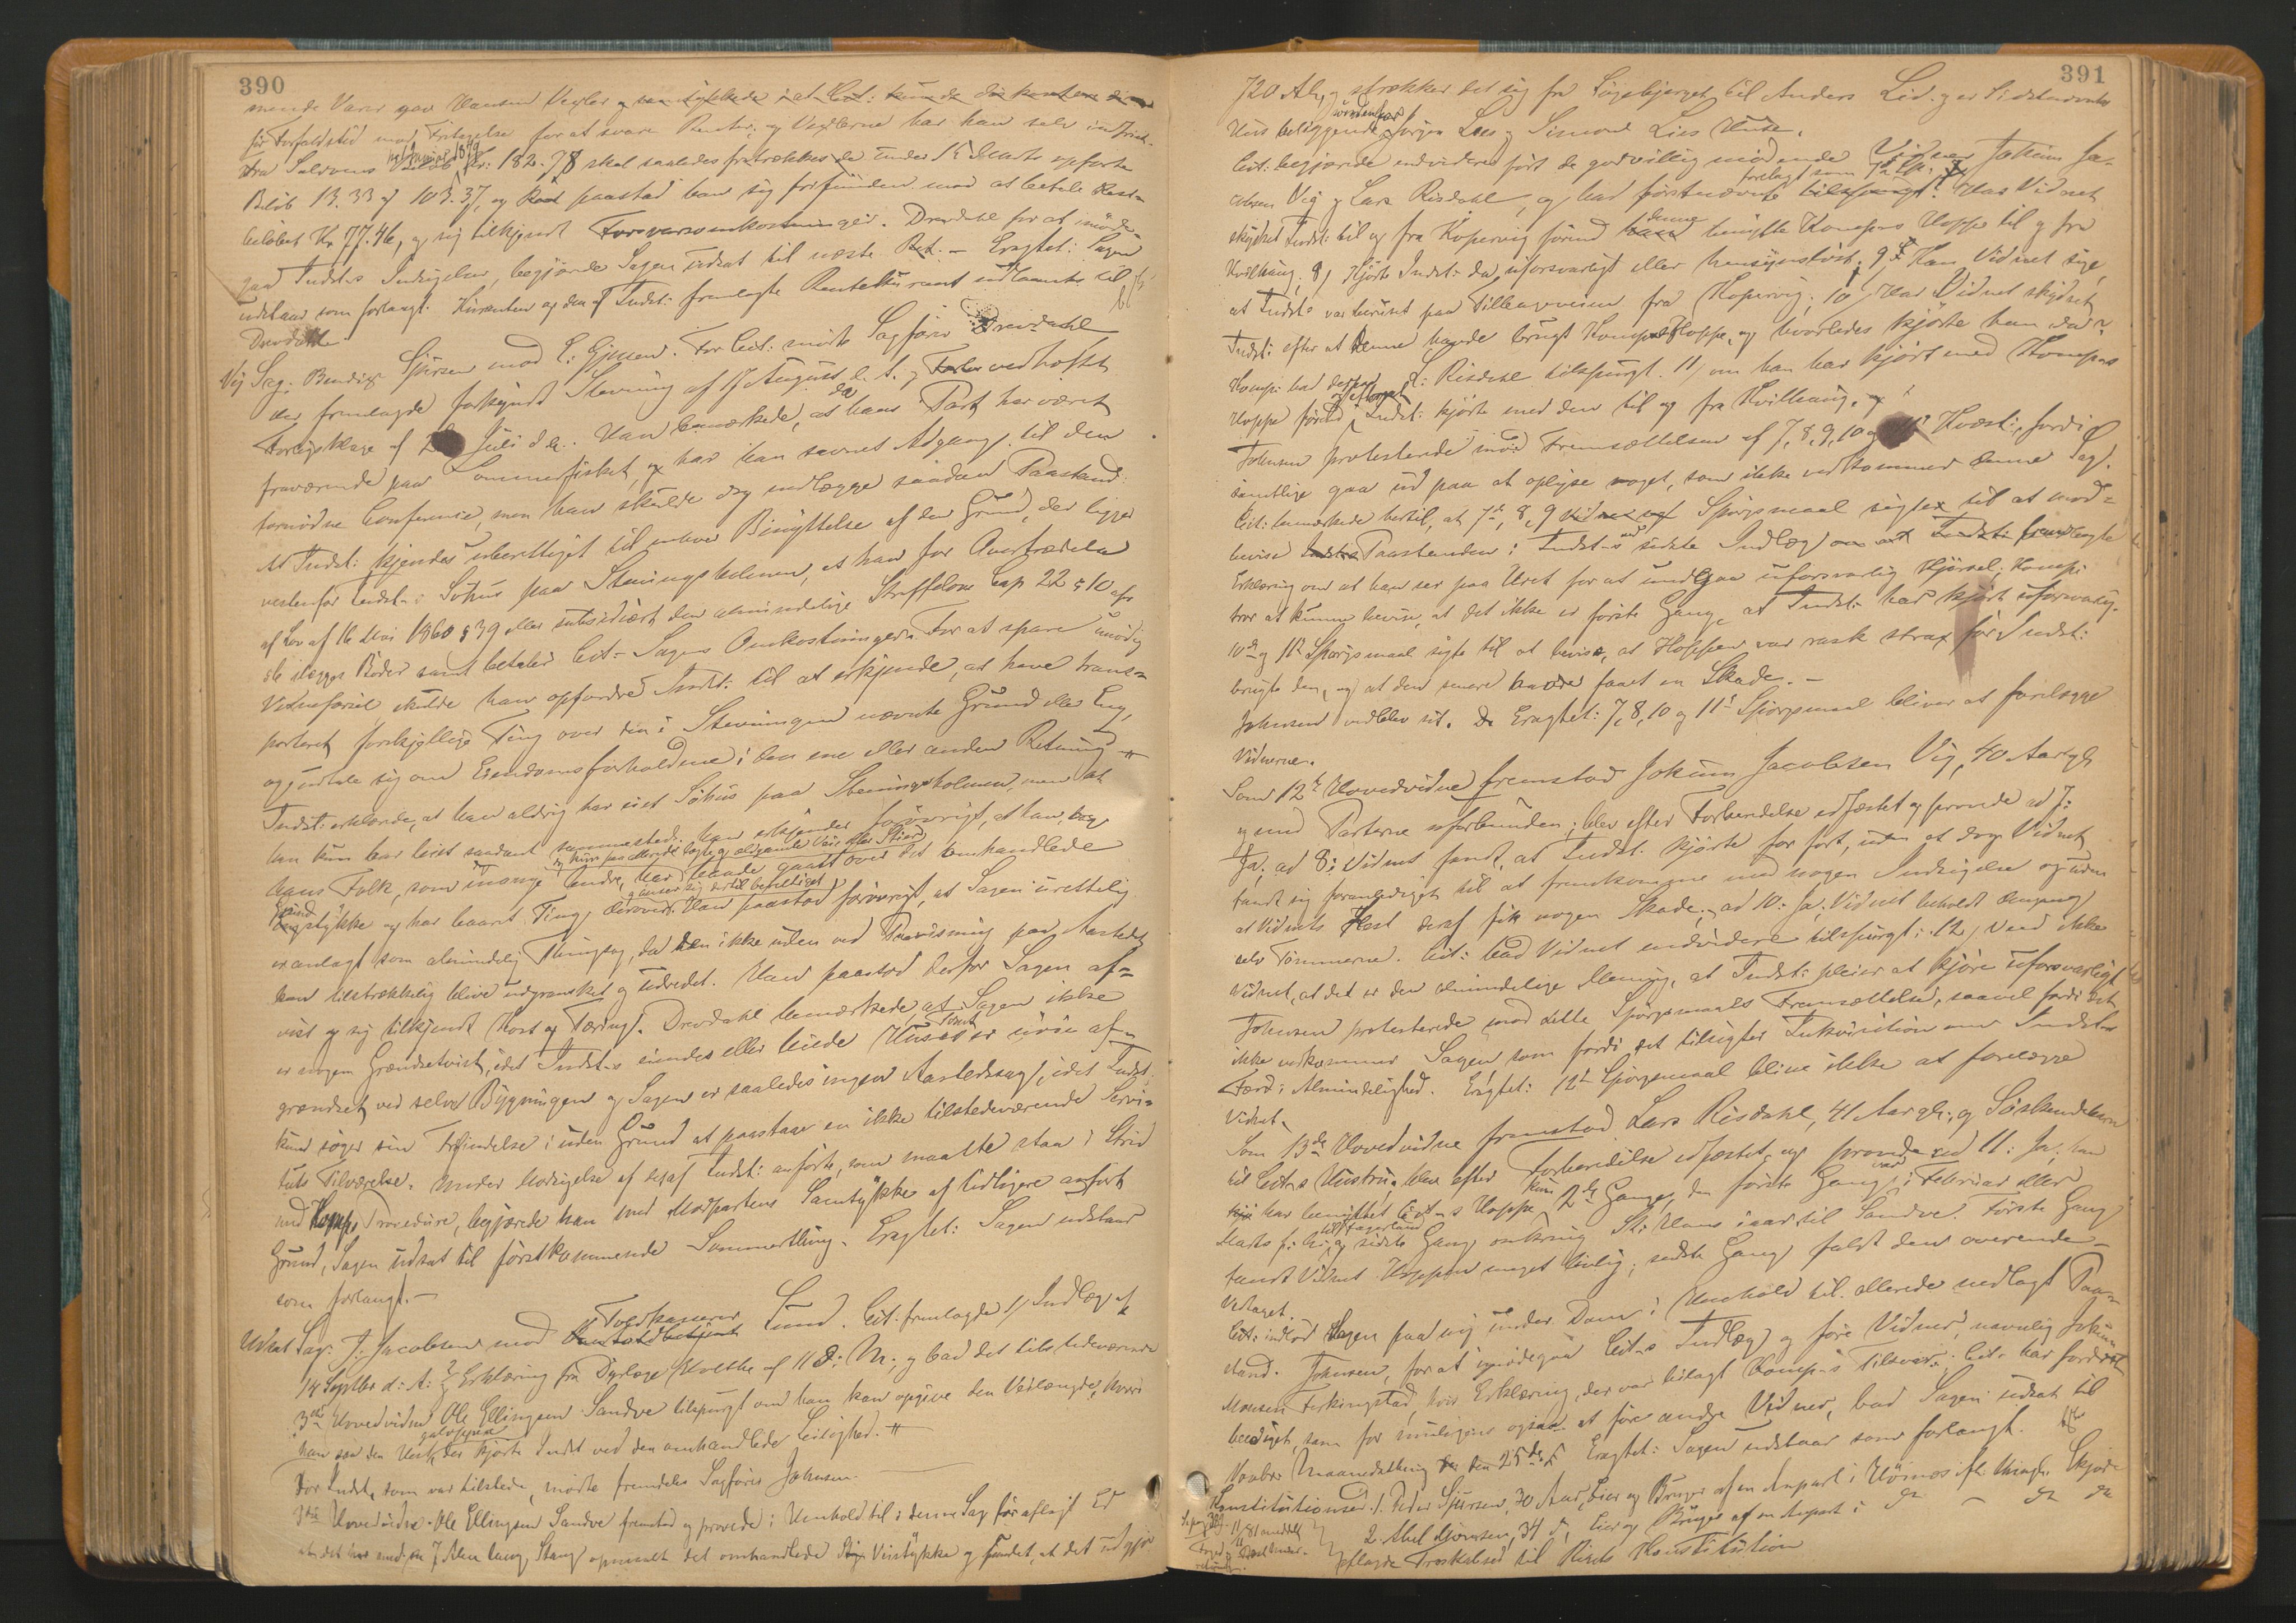 390
mende Varer gav Hansen Vexler
for Forfaldstid mod Fritagelse for at svare Renter, og Vexlerne har han selv indfriet.
Fra Saldoens Beløb Kr: 182.78 skal saaledes fratrækkes de under 15 Marts opførte
Beløb 13.33 og 103.37, og paastod han sig frifunden mod at betale Rest-
beløbet Kr 77.46, og sig tilkjendt Forsvarsomkostninger. Drevdahl for at imøde-
gaa Indst:s Indsigelser, begjærede Sagen udsat til næste Ret. - Eragtet: Sagen
udstaar som forlangt. Kuranten og den af Indst: fremlagte Rentekurant udlaantes til
Drevdahl
Ny Sag: Bendix Sjursen mod E: Gjesen. For Cit: mødte Sagfører Drevdahl
der fremlagde forkyndt Stevning af 17 August d. A. og vedhæftet
Forligsklage af Juli d. A. Han bemærkede, at da hans Part har været
fraværende paa Sommerfisket, har han savnet Adgang til den
fornødne Conference, men han skulde dog nedlægge saadan Paastand:
At Indst: kjendes uberettiget til enhver Benyttelse af den Grund, der ligger
vestenfor Indst:s Søhus paa Steiningsholmen, at han for Overtrædelse
af Lov af 16 Mai 1860 § 39 eller subsidiært den almindelige Straffelovs Cap 22 § 10 cfr
§ 6 ilægges Bøder samt betaler Cit:s Sagens Omkostninger. For at spare unødig
Vidneførsel, skulde han opfordre Indst: til at erkjende, at have trans-
porteret forskjellige Ting over den i Stevningen nævnte Grund eller Eng,
og udtale sig om Eiendomsforholdene i den ene eller anden Retning
Indst: erklærede, at han aldrig har eiet Søhus paa Steiningsholmen, men at
han kun har leiet saadant sammesteds; han erkjender forøvrigt, at han, og
hans Folk, som mange andre, har gaaet over det omhandlede
Grundstykke og har baaret Ting derover. Han paastod forøvrigt, at Sagen urettelig
er anlagt som almindelig Thingsag, da den ikke uden ved Paavisning paa Aastedet
kan tilstrækkelig blive udgransket og udredet. Han paastod derfor Sagen af-
vist og sig tilkjendt Kost og Tæring. Drevdahl bemærkede, at Sagen ikke
er nogen Grændsetvist, idet Indst:s eiendes eller leiede Huses Tomt er nøie af-
grændset ved selve Bygningen og Sagen er saaledes ingen Aastedssag, idet Indst:
kun søger sin Frifindelse i uden Grund at paastaa en ikke tilstedeværende Servi-
tuts Tilværelse. Under Modsigelse af det af Indst: anførte, som maatte staa i Strid
med Komp:s Procedure, begjærede han med Modpartens Samtykke af tidligere anført
Grund, Sagen udsat til førstkommende Sommerthing. Eragtet: Sagen udstaar
som forlangt. -
Udsat Sag: J. Jacobsen mod Toldkasserer Lund. Cit: fremlagde 1/ Indlæg af
14 Septbr d: A: 2/ Erklæring fra Dyrlæge Holthe af 11 d: M:, og bad det tilstedeværende
3die Hovedvidne Ole Ellingsen Sandve tilspurgt om han kan opgive den Veilængde, hvori
han saa den Hest, der kjørte Indst ved den omhandlede Leilighed.
For Indst, som var tilstede, mødte fremdeles Sagfører Johnsen.
3die Hovedvidne Ole Ellingsen Sandve fremstod og provede i Henhold til i denne Sag før aflagt Ed
at det har med en 7 Alen lang Stang opmaalt det omhandlede Veistykke og fundet, at det udgjør
391
720 Al, og strækker det sig fra Løgebjerget til Anders Lid:s og er Sidstnævntes
Hus beliggende Jørgen Lies og Simond Lies Huse.
Cit: begjærede endvidere ført de godvillig mødende Vidner Jokum Ja-
cobsen Vig og Lars Risdahl, og bad førstnævnte forelagt som 7de Sp: Har Vidnet
skydset Indst: til og fra Kopervig førend denne benyttede Komp:s Hoppe til og fra
Hvilhaug; 8/ Kjørte Indst: da uforsvarligt eller hensynsløst; 9/ Kan Vidnet sige,
at Indst: var beruset paa Tilbageveien fra Kopervig; 10/ Har Vidnet skydset
Indst: efter at denne havde brugt Komp:s Hoppe, og hvorledes kjørte han da?
Komp: bad derpaa L: Risdahl tilspurgt 11/ om han har kjørt med Komp:s
Hoppe førend Indst: kjørte med den til og fra Hvilhaug.
Johnsen protesterede mod Fremsættelsen af 7, 8, 9, 10 og 11 Kvæst:, fordi
samtlige gaa ud paa at oplyse noget, som ikke vedkommer denne Sag.
Cit: bemærkede hertil, at 7de, 8, 9 Spørgsmaal sigter til at mod-
bevise Paastanden i Indst:s sidste Indlæg
Erklæring om at han ser paa Uret for at undgaa uforsvarlig Kjørsel; Komp:
tror at kunne bevise, at det ikke er første Gang, at Indst: har kjørt uforsvarlig.
10de og 11te Spørgsmaal sigte til at bevise, at Hoppen var rask strax før Indst:
brugte den, og at den senere havde faaet en Skade. -
Johnsen vedblev sit. Eragtet: 7, 8, 10 og 11te Spørgsmaal bliver at forelægge
Vidnerne.
Som 12te Hovedvidne fremstod Jokum Jacobsen Vig, 40 Aar gl
og med Parterne uforbunden; blev efter Forberedelse edfæstet og provede ad 7:
Ja; ad 8: Vidnet fandt, at Indst. kjørte for fort, uden at dog Vidnet
fandt sig foranlediget til at fremkomme med nogen Indsigelse og uden
at Vidnets Hest deraf fik nogen Skade; ad 10: Ja; Vidnet beholdt dengang
selv Tømmerne. Cit: bad Vidnet endvidere tilspurgt: 12/ Veed ikke
Vidnet, at det er den almindelige Mening, at Indst: pleier at kjøre uforsvarligt
Johnsen protesterede mod dette Spørgsmaals Fremsættelse, saavel fordi det
ikke vedkommer Sagen som fordi det tilsigter Inkvisition om Indst:s
Færd i Almindelighed. Eragtet: 12te Spørgsmaal blive ikke at forelægge
Vidnet.
Som 13de Hovedvidne fremstod Lars Risdahl, 41 Aar gl; og Søskendebarn
til Cit:s Hustru, blev efter Forberedelse edfæstet og provede ad 11: Ja; han
har benyttet Cit:s Hoppe kun 2de Gange, den første Gang var i Februar eller
Marts og sidste Gang omkring St: Hans iaar til Sandve. Første Gang
fandt Vidnet Hoppen meget livlig; sidste Gang faldt den overende -
Vedtaget.
Cit: indlod Sagen paa ny under Dom i Henhold til allerede nedlagt Paa-
stand. Johnsen, for at imødegaa Cit:s Indlæg og føre Vidner, navnlig Jokum
Monsen Ferkingstad, hvis Erklæring, der var bilagt Komp:s Tilsvar, Cit: har fordret
beediget, som for muligens ogsaa at føre andre Vidner, bad Sagen udsat til
Novbr: Maanedsthing den 25de. Eragtet: Sagen udstaar som forlangt.
Konstitutionsed: 1. Peder Sjursen, 30 Aar, Eier og Bruger af en Anpart i Skjold
2. Abel Mjønsen, 34 d, Eier og Bruger af en Anpart i do - do do
aflagde Troskabsed til Rigets Konstitution